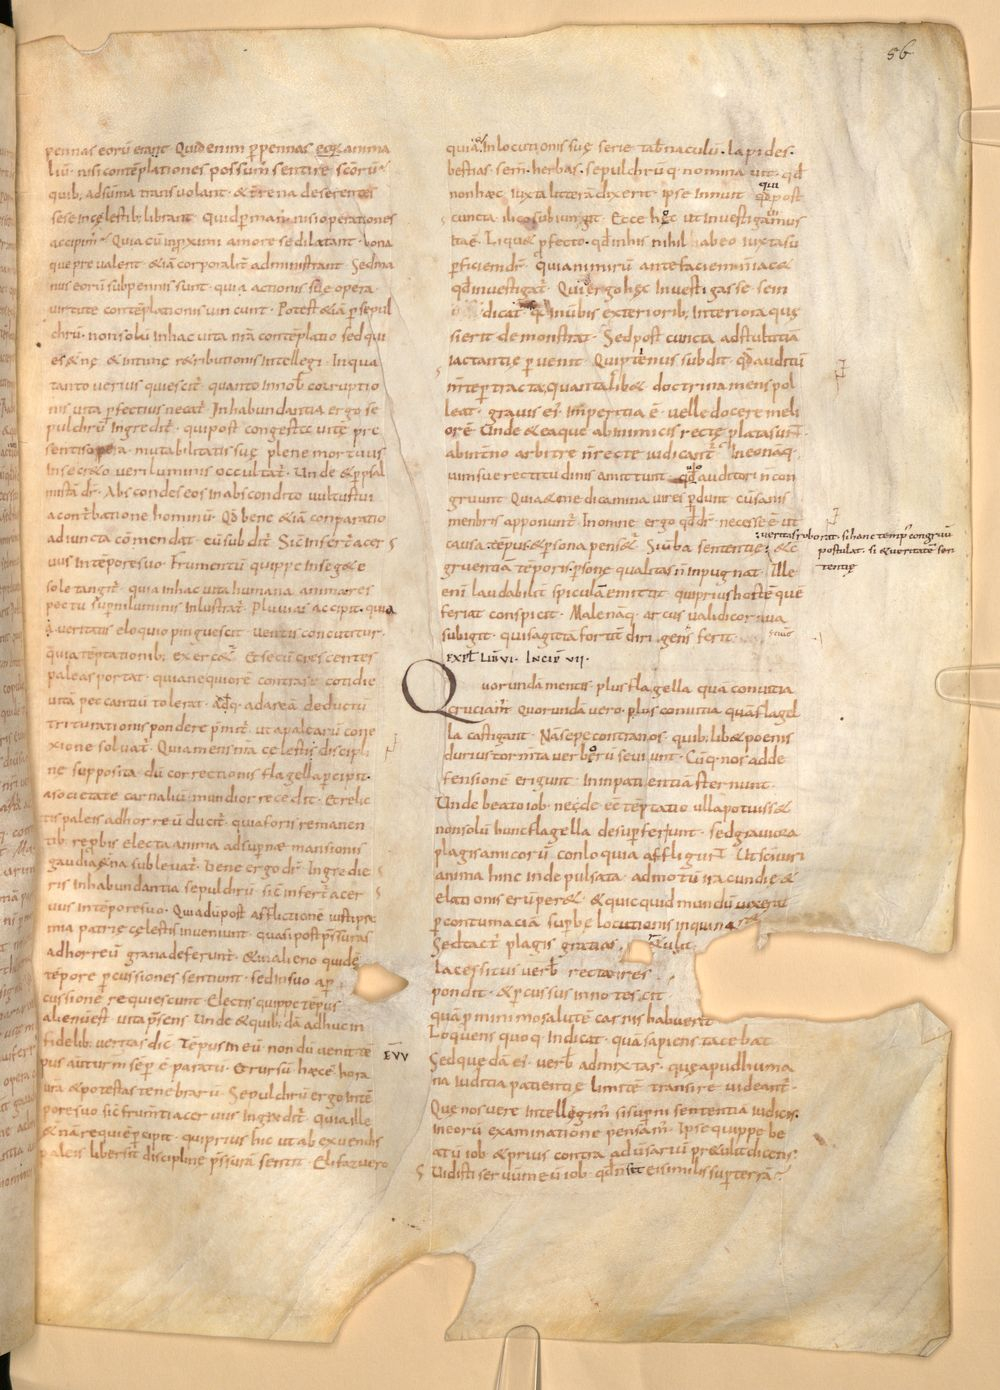 86
pennas eorū erant. Quid enim p̄ pennas eorū anima
liū. nisi contēplationes possum̄ sentire scōrū
quib; ad sūma transuolant. & terrena deserentes
sese in cęlestib; librant. Quid per man; nisi operationes
accipim̄. Quia cū in proximi amore se dilatant. bona
que pre ualent. &iā corporalit̄ administrant. Sed ma
nus eorū sub pennis sunt. quia actionis suę opera.
uirtute contēplationis uincunt. Potest &iā p̄ sepul
chrū. non solū in hac uita nr̄a contēplatio sed qui
es &nę. & intimę r&ributionis intellegi. In qua
tanto uerius quiescit. quanto in nob̄ corruptio
nis uita p̄fectius necat̄. In habundantia ergo se
pulchrū ingredit̄. qui post congestę uitę pre
sentis opera. mutabilitatis suę plene mortuus
in secr&o ueri luminis occultat̄. Unde & p̄ psal
mistā dr̄. Abscondes eos in abscondito uultus tui
a conturbatione hominū. Qd̄ bene &iā conparatio
adiuncta cōmendat. cū subdit̄. Sic infert̄ acer
uus in tēpore suo. Frumentū quippe in seg&e
sole tangit̄. quia in hac uita humana anima res
pectu sup̄ni luminis inlustrat̄. Pluuias accipit. quia
a ueritatis eloquio pinguescit. uentis concutitur.
quia tēptationib; exerc&̄. Et secū crescentes
paleas portat. quia nequiorē contra se cotidie
uitā peccantiū tolerat. Adq; ad areā deductū
triturationis pondere p̄mit̄. ut a palearū cone
xione soluat̄. Quia mens nr̄a cęlestis discipli
nę supposita. dū correctionis flagella p̄cipit.
a societate carnaliū mundior recedit. Et relic
tis paleis ad horreū ducit̄. quia foris remanen
tib; reprobis electa anima ad sup̄nę mansionis
gaudia &na subleuat̄. Bene ergo dr̄. Ingredie
ris in habundantia sepulchrū. sic infert̄ acer
uus in tēpore suo. Qui a dū post afflictionē iusti prę
mia patrię cęlestis inueniunt. quasi post p̄ssuras
ad horreū grana deferunt̄. & in alieno quidē
tēpore p̄cussiones sentiunt. sed in suo a p̄
cussione requiescunt. Electis quippe tēpus
alienū est. uita p̄sens. Unde & quib; dā adhuc in
fidelib; ueritas dic̄. Tēpus meū. nondū uenit tē
pus autē ur̄m sēp̄ ē paratū. Et rursū hęc ē hora
ur̄a & potestas tenebrarū. Sepulchrū ergo in tē
pore suo sic frum̄ti aceruus ingredit̄. Quia ille
&nā requiē p̄cipit. qui prius hic ut ab exuendis
paleis liber sit disciplinę p̄ssurā sentit. Elifaz uero
EVV
quia in locutionis suę serie tabernaculū. lapides.
bestias. sem̄. herbas. sepulchrū q; nominauit. qd̄
non hæc iuxta litterā dixerit. ipse innuit qui post
cuncta ilico subiungit. Ecce hoc ut inuestigauimus
ita ē. Liqu& p̄fecto. qd̄ in his nihil habeo iuxta sū
p̄ficiem dr̄. quia nimirū ante faciem n̄ iac&
qd̄ inuestigat̄. Qui ergo hęc inuestigasse se in
dicat. qd̄ in uerbis exteriorib; interiora quę
sierit demonstrat. Sed post cuncta ad stultitiā
iactantię peruenit. Qui ptinus subdit. qd̄ auditū
mente p̄tracta. Quantalib& doctrina mens pol
leat. grauis ei; inperitia ē. uelle docere meli
orē. Unde & ea quę ab inimicis rectę prolata sunt.
ab interno arbitre n̄ recte iudicant̄. In eo naq;
uim suę rectitudinis amittunt quo auditori n̄ con
gruunt. Quia & medicamina uires p̄dunt. cū sanis
menbris apponunt̄. In omne ergo qd̄ dr̄. necesse ē ut
causa. tēpus & p̄sona pens&̄. Si uerba sententię & c
gruentiā tēporis. p̄sonę qualitas n̄ inpugnat. Ille
eni laudabilit̄ spiculā emittit. qui prius hostē quē
feriat conspicit. Male naq; arcus ualidi cornua
subigit. qui sagittā fortit̄ dirigens ferit ciuiē
: ueritas roborat. si hanc temp̄ congruū
postulat. si & ueritatē sen
tentię
EXPL̄ LIB VI. INCIP̄ VII.
Quorundā mentis plus flagella quā conuitia
cruciant. Quorundā uero. plus conuitia quā flagel
la castigant. Nā sepe contra nos. quib; lib& poenis
durius tormta uerborū seuiunt. Cūq; nos ad de
fensionē erigunt. in inpatientiā sternunt.
Unde beato iob. ne qđe eē tēptatio ulla potuiss&
non solū hunc flagella desup̄ feriunt. sed grauiora
plagis amicorū conloquia affligunt. Ut sciū uiri
anima hinc inde pulsata. ad motū iracundię &
elationis erūper&. & quicquid mundū uixerat
p̄ contumaciā sup̄bę locutionis inquinar&
Sed tact̄ plagis gratias tulit
lacessitus uerb̄ recta res
pondit. & p̄cussus innotescit
quā p̄ minimo salutē carnis habuerit
Loquens quoq; indicat. quā sapiens tacebat
Sed quedā ei; uerb̄ admixta s̄. que apud huma
na iudicia patientię limitē transire uideant̄.
Que nos uere intellegim̄. si sup̄ni sententiā iudicis.
in eorū examinatione pensam̄. Ipse quippe be
atū iob. & prius contra aduersariū pr&ulit dicens.
Uidisti seruum meū iob. qd̄ n̄ sit ei similis sup̄ terrā